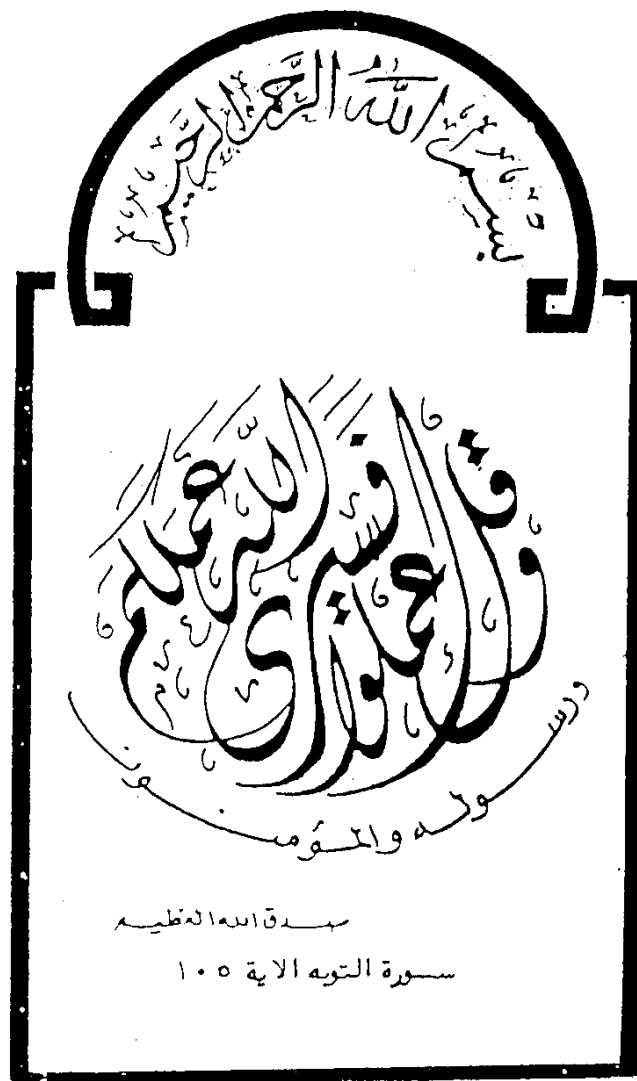 بسم الله الرحمن الرحيم
وقل اعملوا فسيرى الله عملكم
ورسوله والمؤمنون
صدق الله العظيم
سورة التوبه الاية ١٠٥